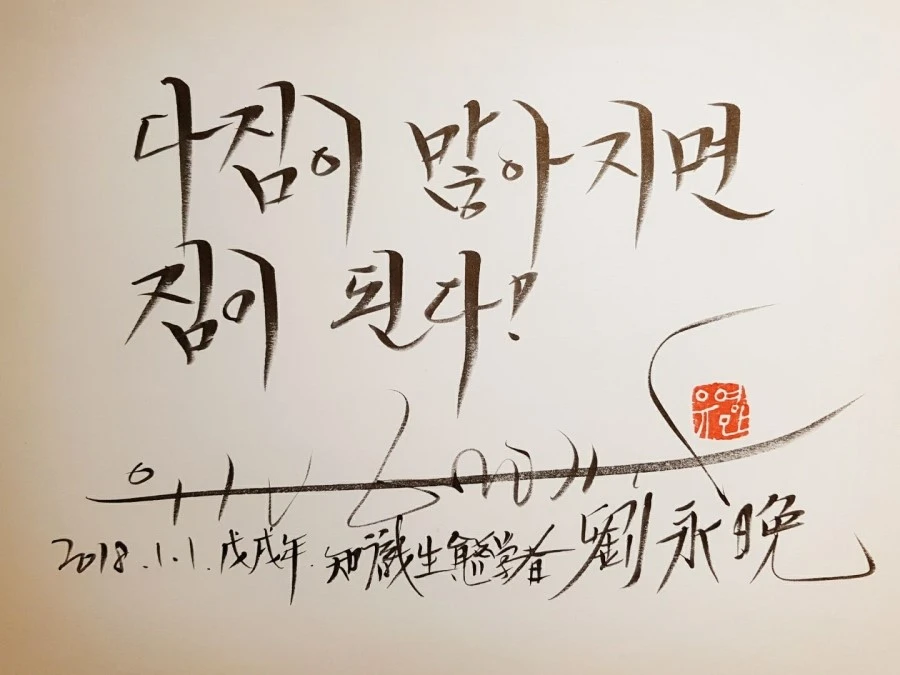 다짐이 많아지면
짐이 된다!
유영만
2018.1.1. 戊戌年. 知識生態学者 劉永晩